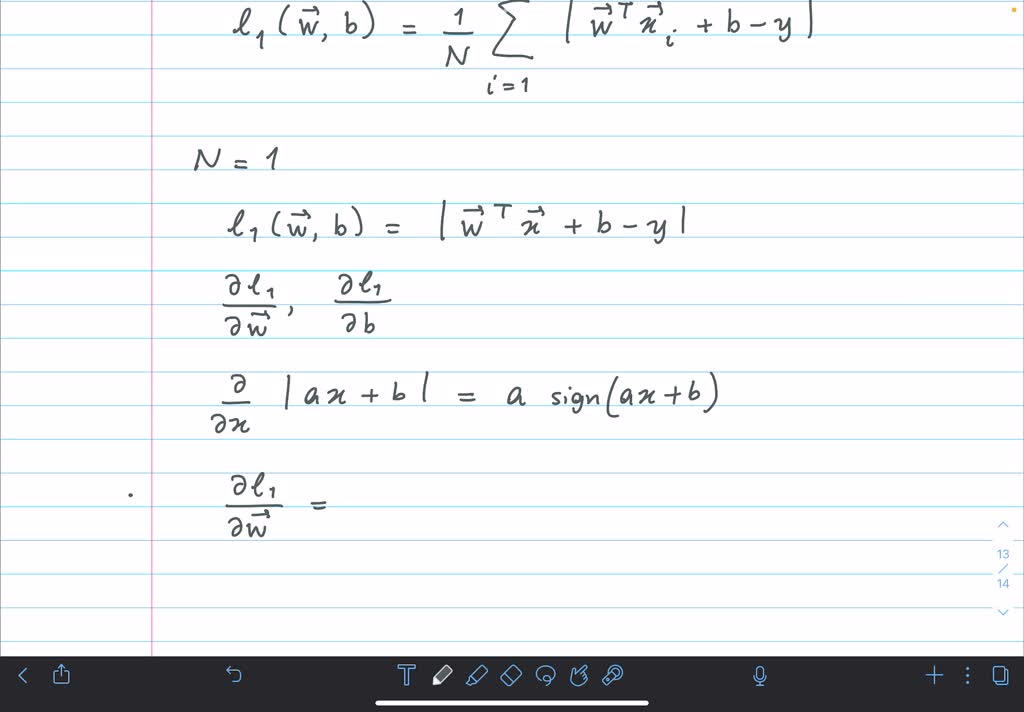 ℓ₁(w⃗, b) = 1/N ∑_{i=1} | w⃗ᵀ x⃗ᵢ + b − y |
N = 1
ℓ₁(w⃗, b) = | w⃗ᵀ x⃗ + b − y |
∂ℓ₁/∂w⃗ , ∂ℓ₁/∂b
∂/∂x | ax + b | = a sign(ax + b)
∂ℓ₁/∂w⃗ =
13
/
14
T